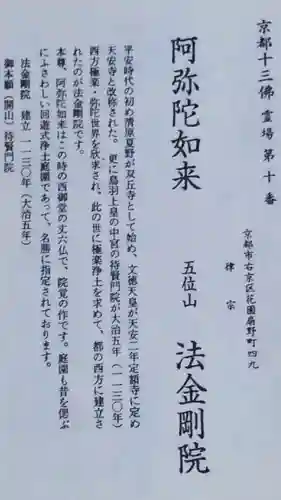 京都十三佛霊場第十番
京都市右京区花園扇野町四九
律宗
阿弥陀如来
五位山 法金剛院
平安時代の初め清原夏野が双丘寺として始め、文徳天皇が天安二年定額寺に定め
天安寺と改称された。更に鳥羽上皇の中宮の待賢門院が大治五年（一一三〇年）
西方極楽・弥陀世界を欣求され、此の世に極楽浄土を求めて、都の西方に建立さ
れたのが法金剛院です。
本尊、阿弥陀如来はこの時の西御堂の丈六仏で、院覚の作です。庭園も昔を偲ぶ
にふさわしい回遊式浄土庭園であって、名勝に指定されております。
法金剛院 建立 一一三〇年（大治五年）
御本願（開山）待賢門院